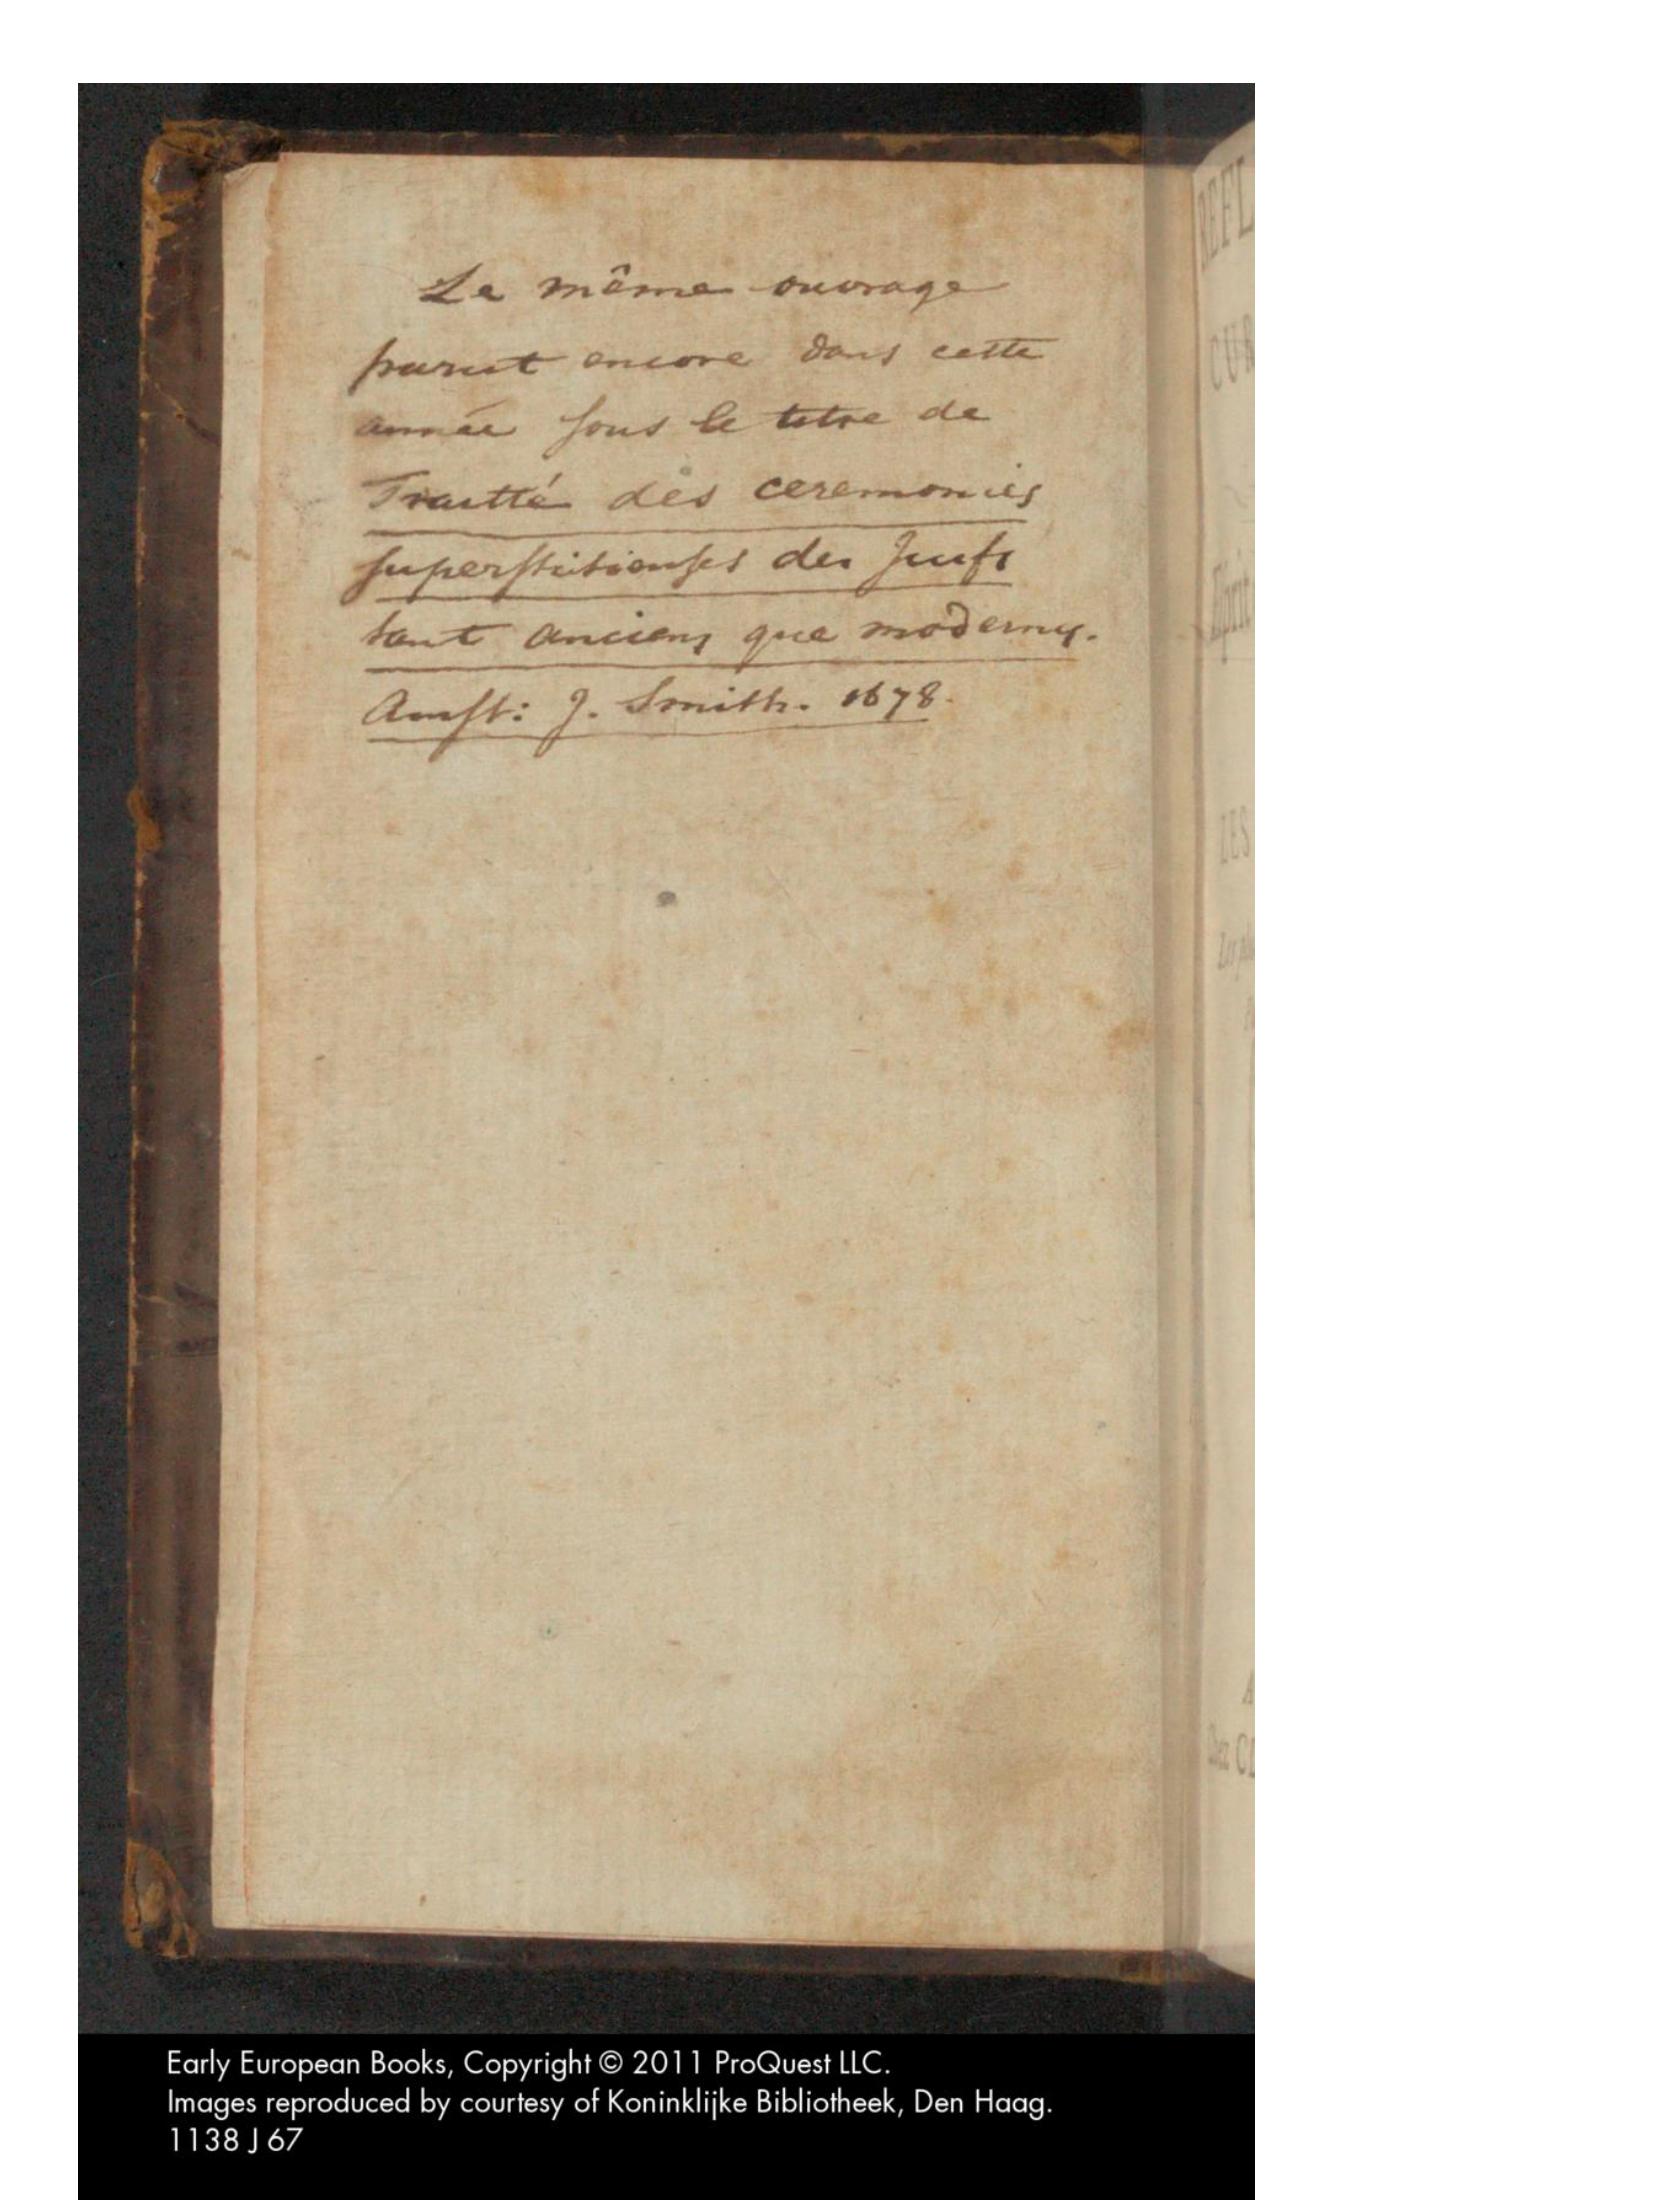 Le même ouvrage
parut encore dans cette
année sous le titre de
Traitté des ceremonies
superstitieuses des Juifs
tant anciens que modernes.
Amst: J. Smith. 1678.
REFL
CUR
Esprit
LES
A
Chez CL
Early European Books, Copyright © 2011 ProQuest LLC.
Images reproduced by courtesy of Koninklijke Bibliotheek, Den Haag.
1138 J 67